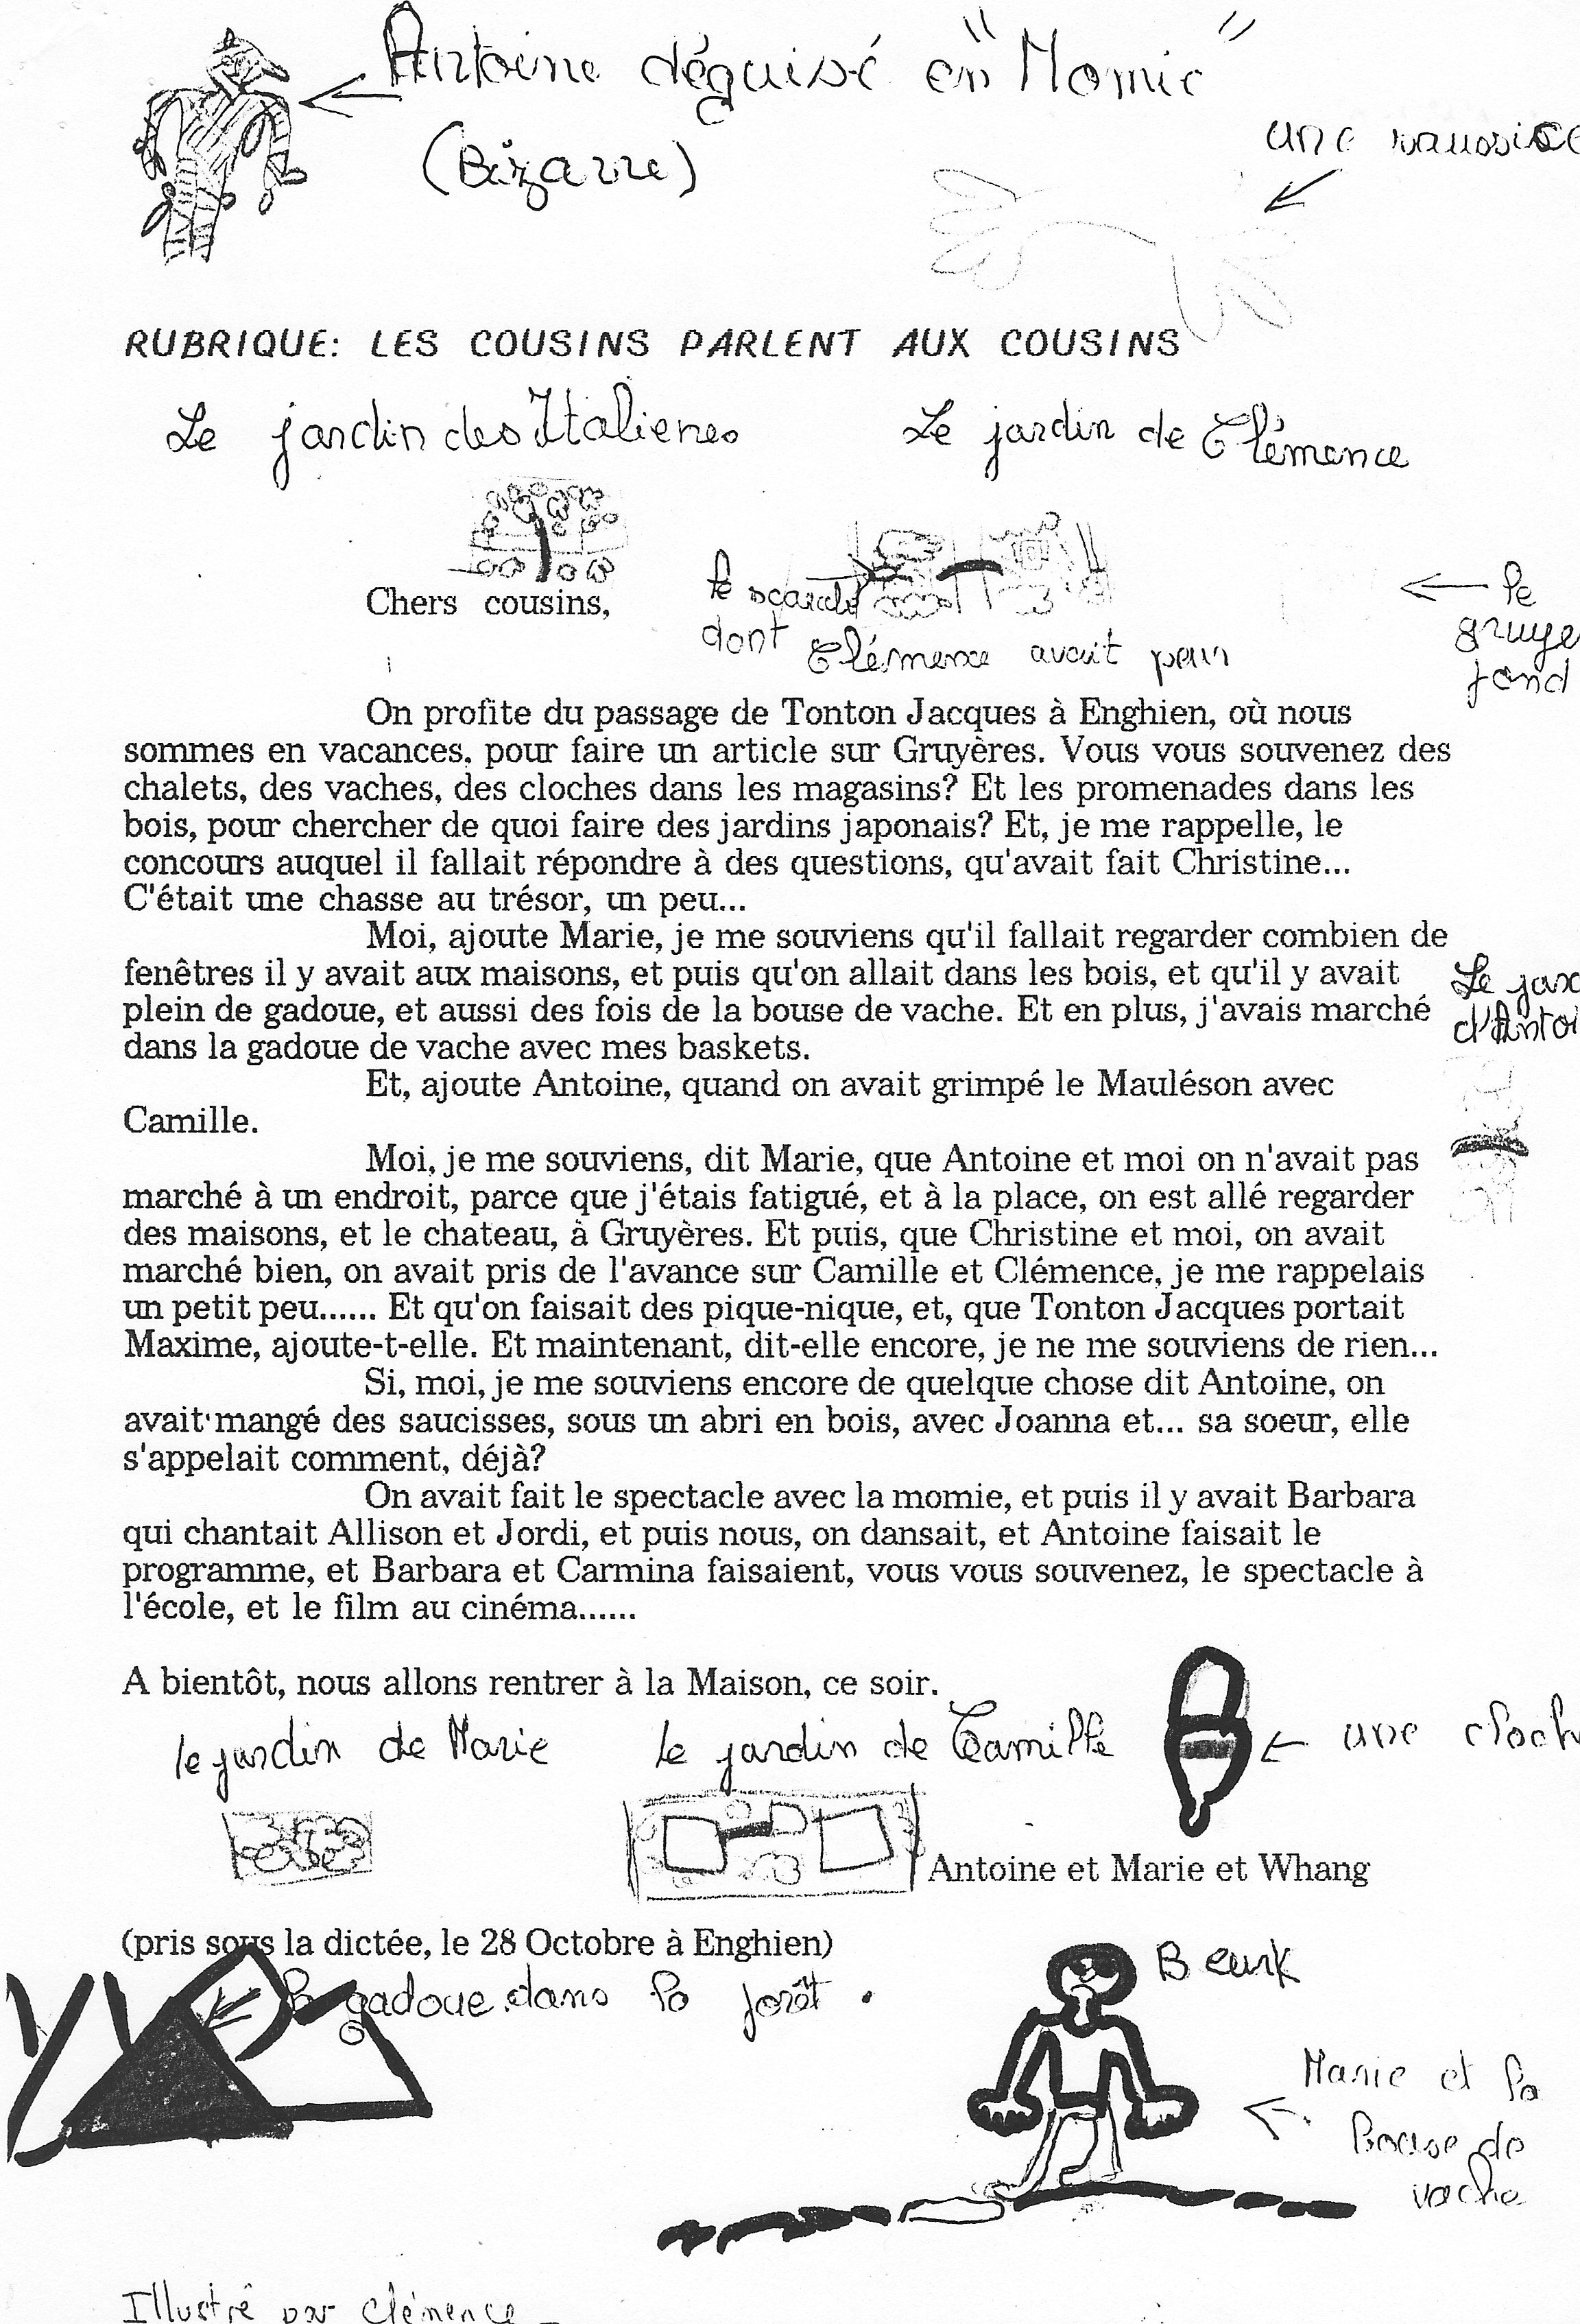 Antoine déguisé en "Momie"
(Bizarre)
une saucisse
RUBRIQUE: LES COUSINS PARLENT AUX COUSINS
Le jardin des Italienes
Le jardin de Clémence
Chers cousins,
le
dont Clémence avait peur
le
gruye
fond
On profite du passage de Tonton Jacques à Enghien, où nous
sommes en vacances, pour faire un article sur Gruyères. Vous vous souvenez des
chalets, des vaches, des cloches dans les magasins? Et les promenades dans les
bois, pour chercher de quoi faire des jardins japonais? Et, je me rappelle, le
concours auquel il fallait répondre à des questions, qu'avait fait Christine...
C'était une chasse au trésor, un peu...
Moi, ajoute Marie, je me souviens qu'il fallait regarder combien de
fenêtres il y avait aux maisons, et puis qu'on allait dans les bois, et qu'il y avait
plein de gadoue, et aussi des fois de la bouse de vache. Et en plus, j'avais marché
dans la gadoue de vache avec mes baskets.
Le jar
d'Antoi
Et, ajoute Antoine, quand on avait grimpé le Mauléson avec
Camille.
Moi, je me souviens, dit Marie, que Antoine et moi on n'avait pas
marché à un endroit, parce que j'étais fatigué, et à la place, on est allé regarder
des maisons, et le chateau, à Gruyères. Et puis, que Christine et moi, on avait
marché bien, on avait pris de l'avance sur Camille et Clémence, je me rappelais
un petit peu...... Et qu'on faisait des pique-nique, et, que Tonton Jacques portait
Maxime, ajoute-t-elle. Et maintenant, dit-elle encore, je ne me souviens de rien...
Si, moi, je me souviens encore de quelque chose dit Antoine, on
avait mangé des saucisses, sous un abri en bois, avec Joanna et... sa soeur, elle
s'appelait comment, déjà?
On avait fait le spectacle avec la momie, et puis il y avait Barbara
qui chantait Allison et Jordi, et puis nous, on dansait, et Antoine faisait le
programme, et Barbara et Carmina faisaient, vous vous souvenez, le spectacle à
l'école, et le film au cinéma......
A bientôt, nous allons rentrer à la Maison, ce soir.
le jardin de Marie
le jardin de Camille
une cloch
Antoine et Marie et Whang
(pris sous la dictée, le 28 Octobre à Enghien)
la gadoue dans la forêt.
Beurk
Marie et la
Bouse de
vache
Illustré par Clémence